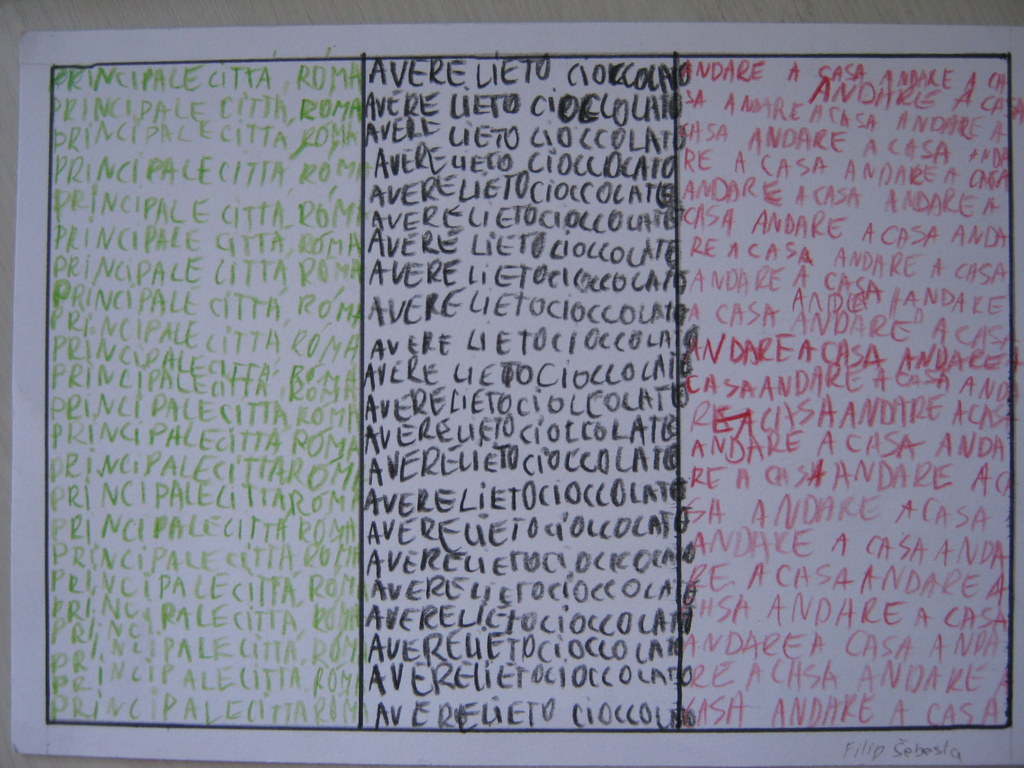 PRINCIPALE CITTÀ, ROMA
PRINCIPALE CITTÀ, ROMA
PRINCIPALE CITTÀ, ROMA
PRINCIPALE CITTÀ, ROMA
PRINCIPALE CITTÀ, ROMA
PRINCIPALE CITTÀ, ROMA
PRINCIPALE CITTÀ, ROMA
PRINCIPALE CITTÀ, ROMA
PRINCIPALE CITTÀ, ROMA
PRINCIPALE CITTÀ, ROMA
PRINCIPALE CITTÀ, ROMA
PRINCIPALE CITTÀ, ROMA
PRINCIPALE CITTÀ, ROMA
PRINCIPALE CITTÀ ROMA
PRINCIPALE CITTÀ ROMA
PRINCIPALE CITTÀ, ROMA
PRINCIPALE CITTÀ, ROMA
PRINCIPALE CITTÀ, ROMA
PRINCIPALE CITTÀ, ROMA
PRINCIPALE CITTÀ, ROMA
PRINCIPALE CITTÀ, ROMA
PRINCIPALE CITTÀ ROMA
AVERE LIETO CIOCCOLATO
AVERE LIETO CIOCCOLATO
AVERE LIETO CIOCCOLATO
AVERE LIETO CIOCCOLATO
AVERE LIETO CIOCCOLATO
AVERE LIETO CIOCCOLATO
AVERE LIETO CIOCCOLATO
AVERE LIETO CIOCCOLATO
AVERE LIETO CIOCCOLATO
AVERE LIETO CIOCCOLATO
AVERE LIETO CIOCCOLATO
AVERE LIETO CIOCCOLATO
AVERE LIETO CIOCCOLATO
AVERE LIETO CIOCCOLATO
AVERE LIETO CIOCCOLATO
AVERE LIETO CIOCCOLATO
AVERE LIETO CIOCCOLATO
AVERE LIETO CIOCCOLATO
AVERE LIETO CIOCCOLATO
AVERE LIETO CIOCCOLATO
AVERE LIETO CIOCCOLATO
AVERE LIETO CIOCCOLATO
ANDARE A CASA ANDARE A CA
ANDARE A CASA
SA ANDARE A CASA ANDARE A
CASA ANDARE A CASA ANDA
RE A CASA ANDARE A CASA
ANDARE A CASA ANDARE A
CASA ANDARE A CASA ANDA
RE A CASA ANDARE A CASA
ANDARE A CASA ANDARE
A CASA ANDARE A CASA
ANDARE A CASA ANDARE A
CASA ANDARE A CASA AND
RE A CASA ANDARE A CASA
ANDARE A CASA ANDA
RE A CASA ANDARE A CA
SA ANDARE A CASA
ANDARE A CASA ANDA
RE A CASA ANDARE A
CASA ANDARE A CASA
ANDARE A CASA ANDA
RE A CASA ANDARE A
CASA ANDARE A CASA
Filip Šebesta